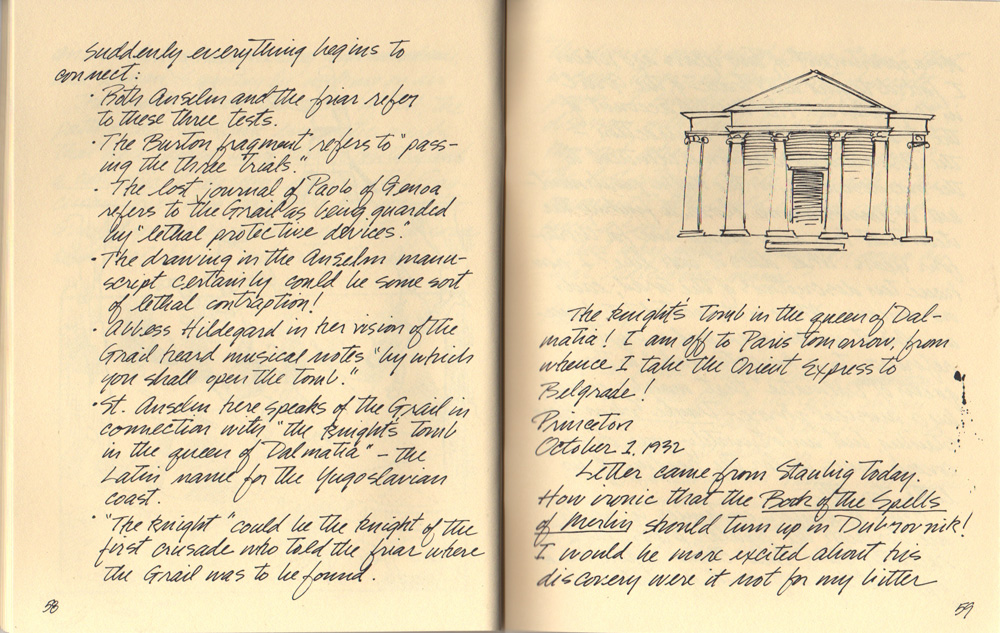 Suddenly everything begins to
connect:
• Both Anselm and the friar refer
to these three tests.
• The Burton fragment refers to "pass-
ing the three trials."
• The lost journal of Paolo of Genoa
refers to the Grail as being guarded
by "lethal protective devices".
• The drawing in the Anselm manu-
script certainly could be some sort
of lethal contraption!
• Abbess Hildegard in her vision of the
Grail heard musical notes "by which
you shall open the tomb."
• St. Anselm here speaks of the Grail in
connection with "the knight's tomb
in the queen of Dalmatia" – the
Latin name for the Yugoslavian
coast.
• "The knight" could be the knight of the
first crusade who told the friar where
the Grail was to be found.
58
The knight's Tomb in the queen of Dal-
matia! I am off to Paris tomorrow, from
whence I take the Orient Express to
Belgrade!
Princeton
October 2, 1932
Letter came from Staubig today.
How ironic that the Book of the Spells
of Merlin should turn up in Dubrovnik!
I would be more excited about his
discovery were it not for my bitter
59